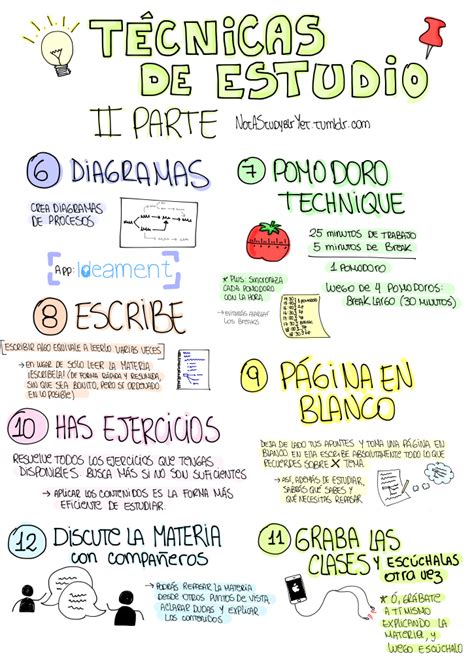 TÉCNICAS
DE ESTUDIO
II PARTE
NotAStudyblrYet.tumblr.com
6 DIAGRAMAS
CREA DIAGRAMAS
DE PROCESOS
App: Ideament
7 POMODORO
TECHNIQUE
25 MINUTOS DE TRABAJO
5 MINUTOS DE BREAK
1 POMODORO
LUEGO DE 4 POMODOROS:
BREAK LARGO (30 MINUTOS)
* PLUS: SINCRONIZA
CADA POMODORO
CON LA HORA
→ EVITARÁS ALARGAR
LOS BREAKS
8 ESCRIBE
[ESCRIBIR ALGO EQUIVALE A LEERLO VARIAS VECES]
→ EN LUGAR DE SOLO LEER LA MATERIA
¡ESCRÍBELA! (DE FORMA RÁPIDA Y RESUMIDA,
SIN QUE SEA BONITO, PERO SÍ ORDENADO
EN LO POSIBLE)
9 PÁGINA EN
BLANCO
DEJA DE LADO TUS APUNTES Y TOMA UNA PÁGINA EN
BLANCO. EN ELLA ESCRIBE ABSOLUTAMENTE TODO LO QUE
RECUERDES SOBRE X TEMA
→ ASÍ, ADEMÁS DE ESTUDIAR,
SABRÁS QUÉ SABES Y
QUÉ NECESITAS REPASAR
10 HAS EJERCICIOS
RESUELVE TODOS LOS EJERCICIOS QUE TENGAS
DISPONIBLES. BUSCA MÁS SI NO SON SUFICIENTES
→ APLICAR LOS CONTENIDOS ES LA FORMA MÁS
EFICIENTE DE ESTUDIAR.
11 GRABA LAS
CLASES Y ESCÚCHALAS
OTRA VEZ
* Ó, GRÁBATE
A TI MISMO
EXPLICANDO LA
MATERIA, Y
LUEGO ESCÚCHALO
12 DISCUTE LA MATERIA
con compañeros
→ PODRÁS REPASAR LA MATERIA
DESDE OTROS PUNTOS DE VISTA,
ACLARAR DUDAS Y EXPLICAR
LOS CONTENIDOS